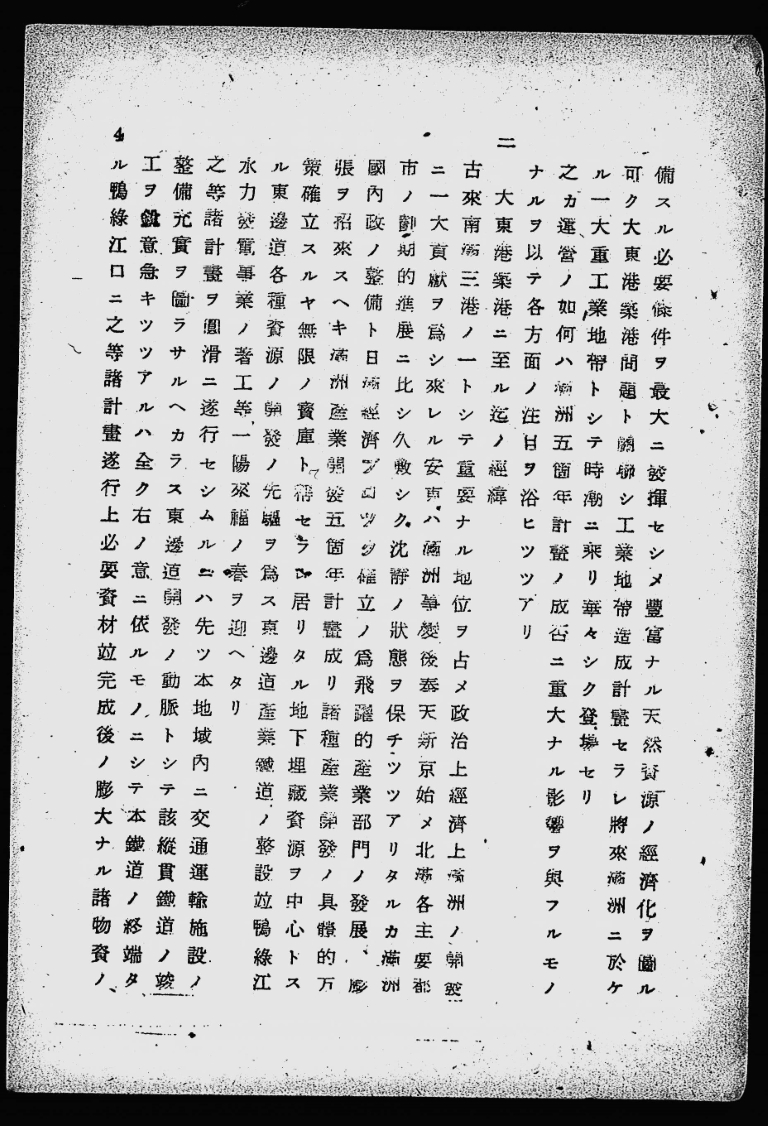 備スル必要條件ヲ最大ニ發揮セシメ豐富ナル天然資源ノ經濟化ヲ圖ル
可ク大東港築港問題ト關聯シ工業地帶造成計畫セラレ將來滿洲ニ於ケ
ル一大重工業地帶トシテ時潮ニ乘リ華々シク登場セリ
之カ運營ノ如何ハ滿洲五箇年計畫ノ成否ニ重大ナル影響ヲ與フルモノ
ナルヲ以テ各方面ノ注目ヲ浴ヒツツアリ
二
大東港築港ニ至ル迄ノ經緯
古來南滿三港ノ一トシテ重要ナル地位ヲ占メ政治上經濟上滿洲ノ開發
ニ一大貢獻ヲ爲シ來レル安東ハ滿洲事變後奉天新京始メ北滿各主要都
市ノ劃期的進展ニ比シ久敷シク沈靜ノ狀態ヲ保チツツアリタルカ滿洲
國內政ノ整備ト日滿經濟ブロツク確立ノ爲飛躍的產業部門ノ發展、膨
張ヲ招來スヘキ滿洲產業開發五箇年計畫成リ諸種產業開發ノ具體的方
策確立スルヤ無限ノ寶庫ト稱セラ居リタル地下埋藏資源ヲ中心トス
ル東邊道各種資源ノ開發ノ先驅ヲ爲ス東邊道產業鐵道ノ整設竝鴨綠江
水力發電事業ノ著工等一陽來福ノ春ヲ迎ヘタリ
之等諸計畫ヲ圓滑ニ遂行セシムルニハ先ツ本地域內ニ交通運輸施設ノ
整備充實ヲ圖ラサルヘカラス東邊道開發ノ動脈トシテ該縱貫鐵道ノ竣
工ヲ銳意急キツツアルハ全ク右ノ意ニ依ルモノニシテ本鐵道ノ終端タ
ル鴨綠江口ニ之等諸計畫遂行上必要資材竝完成後ノ膨大ナル諸物資ノ、
4